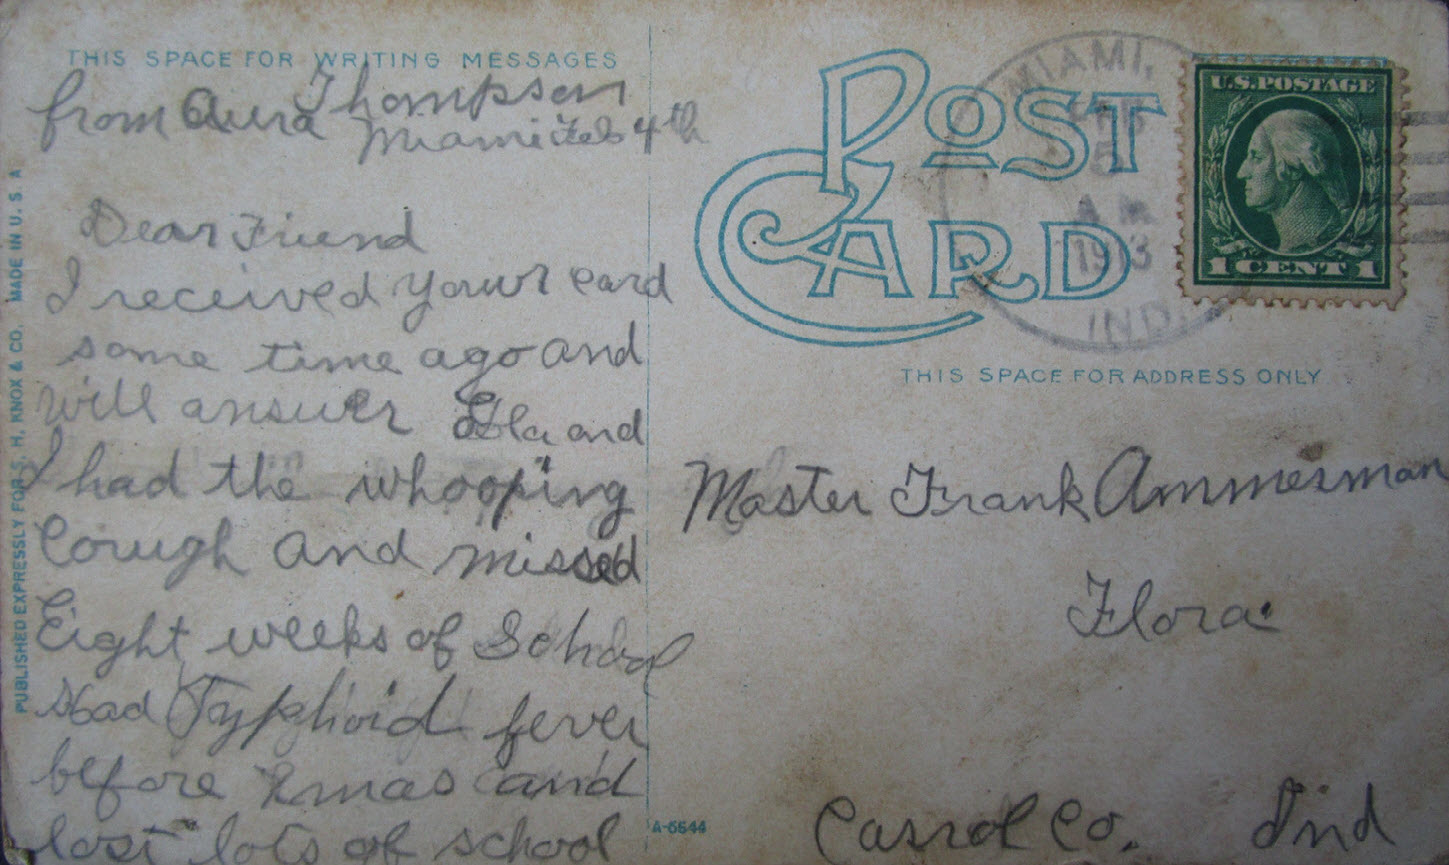 THIS SPACE FOR WRITING MESSAGES
from Aura Thompson
Miami Feb 4th
Dear Friend
I received your card
some time ago and
will answer and
I had the whooping
Cough and missed
Eight weeks of School
Had Typhoid fever
before Xmas and
lost lots of school
PUBLISHED EXPRESSLY FOR S. H. KNOX & CO. MADE IN U. S. A
POST CARD
MIAMI,
FEB
5
A.M.
1913
IND.
U.S. POSTAGE
1 CENT 1
THIS SPACE FOR ADDRESS ONLY
Master Frank Ammerman
Flora
Carrol Co. Ind
A-6644